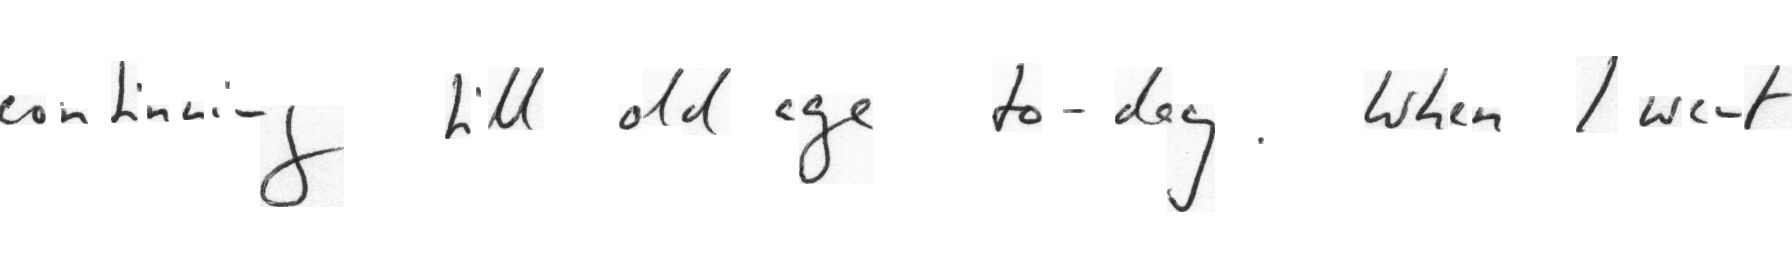 continuing till old age to-day. When I went